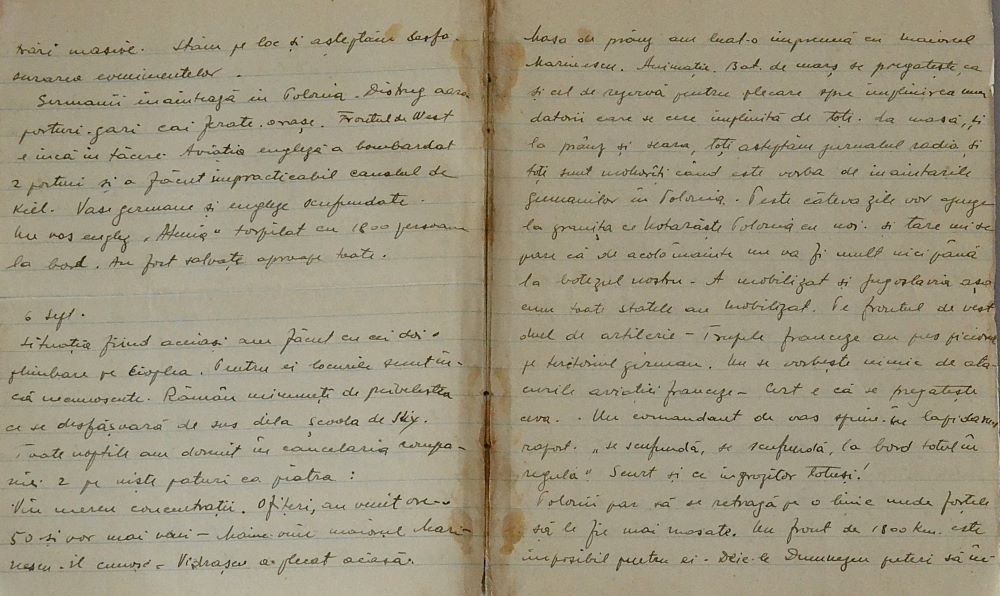 trări masive. Stăm pe loc și așteptăm desfă-
surarea evenimentelor.
Germanii înaintează în Polonia. Distrug aero
porturi. gari cai ferate. orașe. Frontul de West
e încă în tăcere. Aviatia engleză a bombardat
2 porturi și a făcut impracticabil canalul de
Kiel. Vase germane și engleze scufundate.
Un vas englez „Atenia" torpilat cu 1800 persoane
la bord. Au fost salvate aproape toate.
6 Sept.
Situația fiind aceiași am făcut cu cei doi o
plimbare pe Cioplea. Pentru ei locurile sunt în-
că necunoscute. Rămân minunați de priveliștea
ce se desfășoară de sus dela Școala de Ski.
Toate nopțile am dormit în cancelaria compa-
niei 2 pe niște paturi ca piatra:
Vin mereu concentrații. Ofițeri, au venit
50 și vor mai veni - Mâine vine maiorul Mari-
nescu. Îl cunosc - Vidrașcu a plecat acasă.
Masa de prânz am luat-o împreună cu maiorul
Marinescu. Animație. Bat. de marș se pregătește, ca
și cel de rezervă pentru plecare spre împlinirea unei
datorii care se cere împlinită de toți. La masă, și
la prânz și seara, toți așteptăm jurnalul radio și
toți sunt mohorîți când este vorba de înaintările
germanilor în Polonia. Peste câteva zile vor ajunge
la granița ce hotărăște Polonia cu noi. și tare mi se
pare că de acolo înainte nu va fi mult nici până
la botezul nostru - A mobilizat și Jugoslavia așa
cum toate statele au mobilizat. Pe frontul de vest
duel de artilerie - Trupele franceze au pus piciorul
pe teritoriul german. Nu se vorbește nimic de ata-
curile aviatiei franceze - Cert e că se pregătește
ceva. - Un comandant de vas spune în lapidarul
raport. „se scufundă, se scufundă, la bord totul în
regulă" Scurt și ce îngrozitor totuși!
Polonii par să se retragă pe o linie unde forțele
să le fie mai masate. Un front de 1800 km. este
imposibil pentru ei - Deie-le Dumnezeu puteri să în-